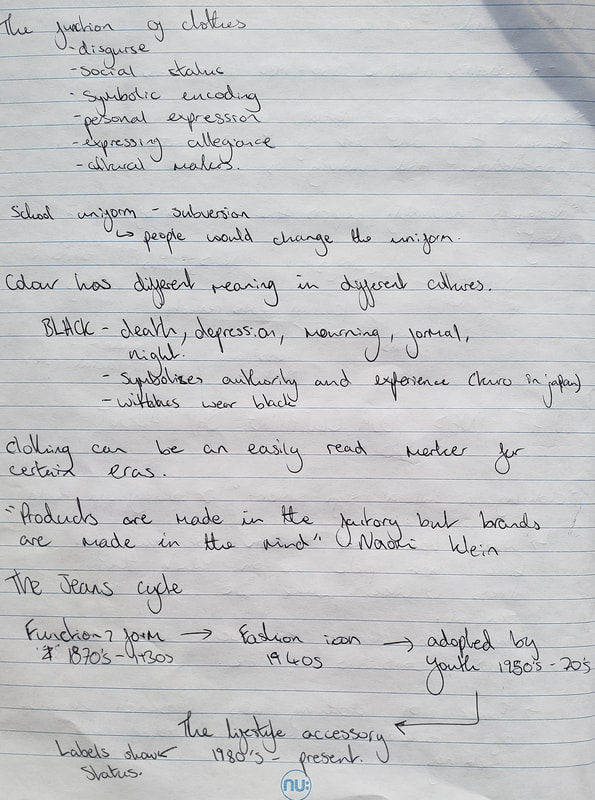 The function of clothes
- disguise
- social status
- symbolic encoding
- personal expression
- expressing allegiance
- cultural makers.
School uniform - subversion
↳ people would change the uniform.
Colour has different meaning in different cultures.
BLACK - death, depression, mourning, formal,
night.
- symbolizes authority and experience (kuro in japan)
- witches wear black
clothing can be an easily read marker for
certain eras.
"Products are made in the factory but brands
are made in the mind" Naomi Klein
The Jeans cycle
Function? form → Fashion icon → adopted by
1870's - 1930s 1940s youth 1950's - 70's
The lifestyle accessory
Labels show 1980's - present.
Status.
nu: